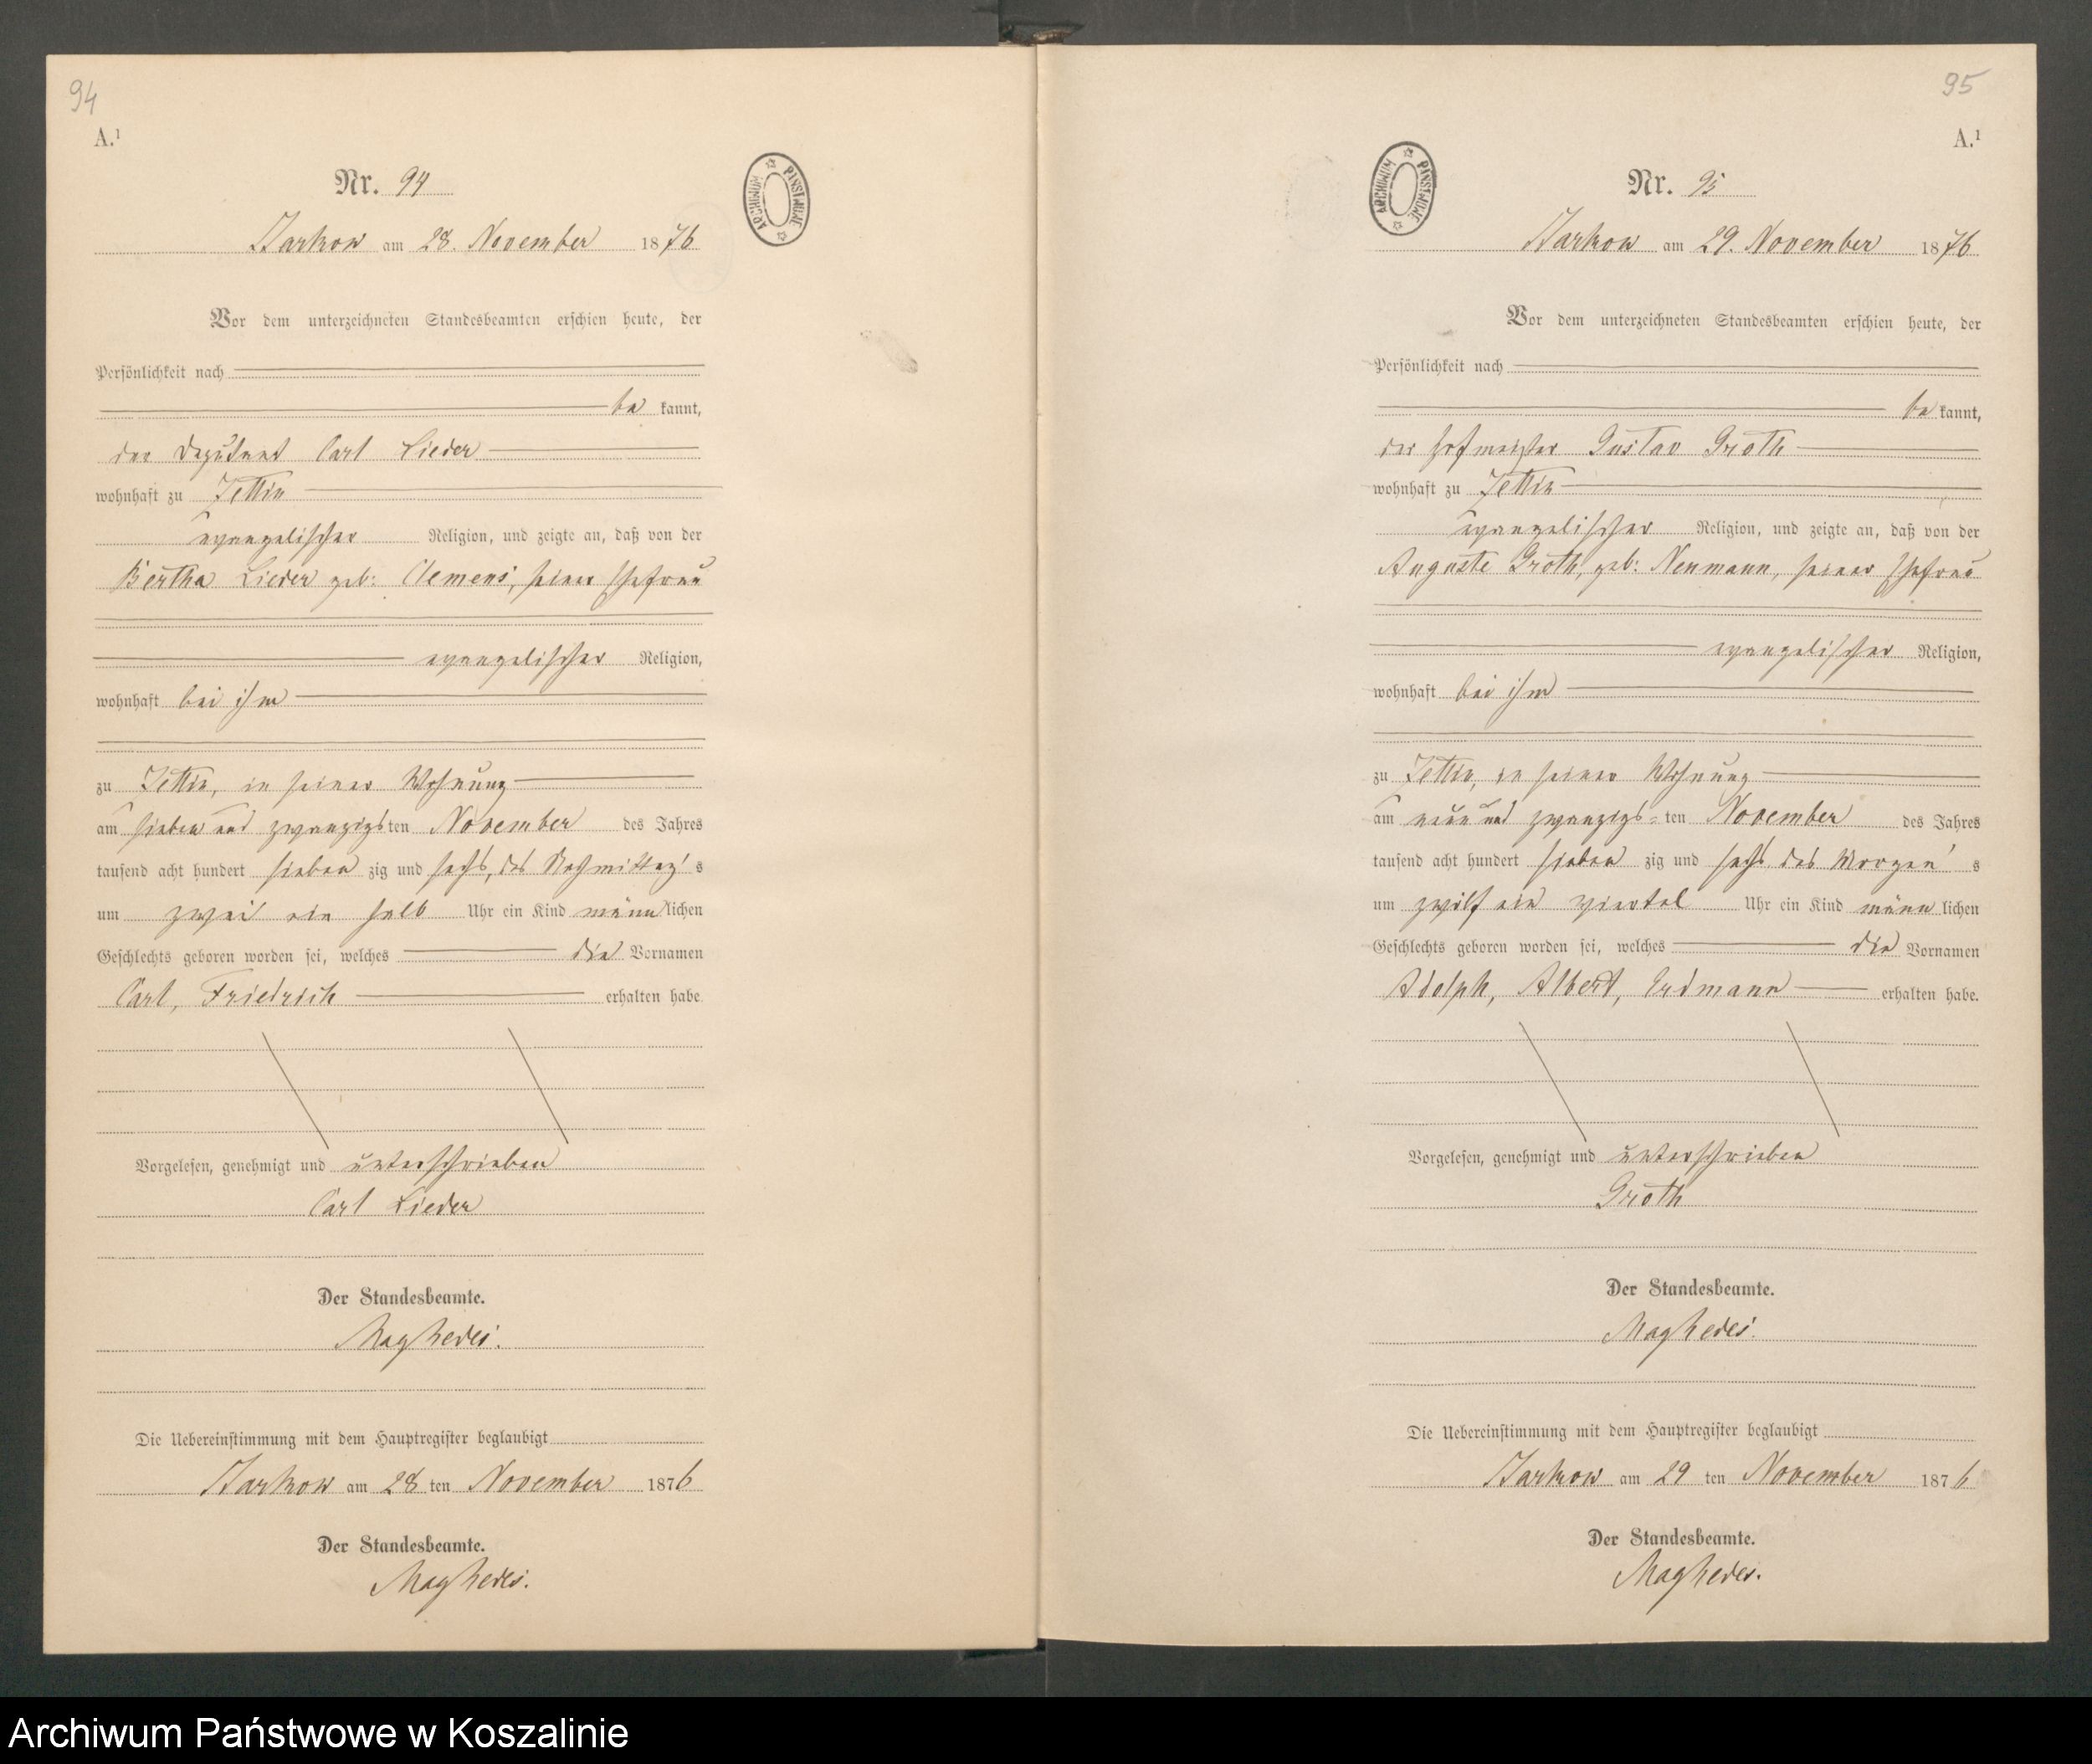 94
A.¹
Nr. 94
ARCHIWUM PAŃSTWOWE
Barkow am 28. November 1876
Vor dem unterzeichneten Standesbeamten erschien heute, der
Persönlichkeit nach
be kannt,
der Deputant Carl Lieder
wohnhaft zu Zettin
evangelischer Religion, und zeigte an, daß von der
Bertha Lieder geb: Clemens, seiner Ehefrau
evangelischer Religion,
wohnhaft bei ihm
zu Zettin, in seiner Wohnung
am sieben und zwanzigsten November des Jahres
tausend acht hundert sieben zig und sechs, des Nachmittag's
um zwei ein halb Uhr ein Kind männlichen
Geschlechts geboren worden sei, welches die Vornamen
Carl, Friedrich erhalten habe.
Vorgelesen, genehmigt und unterschrieben
Carl Lieder
Der Standesbeamte.
Der Uebereinstimmung mit dem Hauptregister beglaubigt
Barkow am 28 ten November 1876
Der Standesbeamte.
95
A.¹
Nr. 95
ARCHIWUM PAŃSTWOWE
Barkow am 29. November 1876
Vor dem unterzeichneten Standesbeamten erschien heute, der
Persönlichkeit nach
be kannt,
der Hofmeister Gustav Groth
wohnhaft zu Zettin
evangelischer Religion, und zeigte an, daß von der
Auguste Groth, geb: Neumann, seiner Ehefrau
evangelischer Religion,
wohnhaft bei ihm
zu Zettin, in seiner Wohnung
am neun und zwanzigs=ten November des Jahres
tausend acht hundert sieben zig und sechs, des Morgen's
um zwölf ein viertel Uhr ein Kind männ lichen
Geschlechts geboren worden sei, welches die Vornamen
Adolph, Albert, Erdmann erhalten habe.
Vorgelesen, genehmigt und unterschrieben
Groth
Der Standesbeamte.
Die Uebereinstimmung mit dem Hauptregister beglaubigt
Barkow am 29 ten November 1876
Der Standesbeamte.
Archiwum Państwowe w Koszalinie